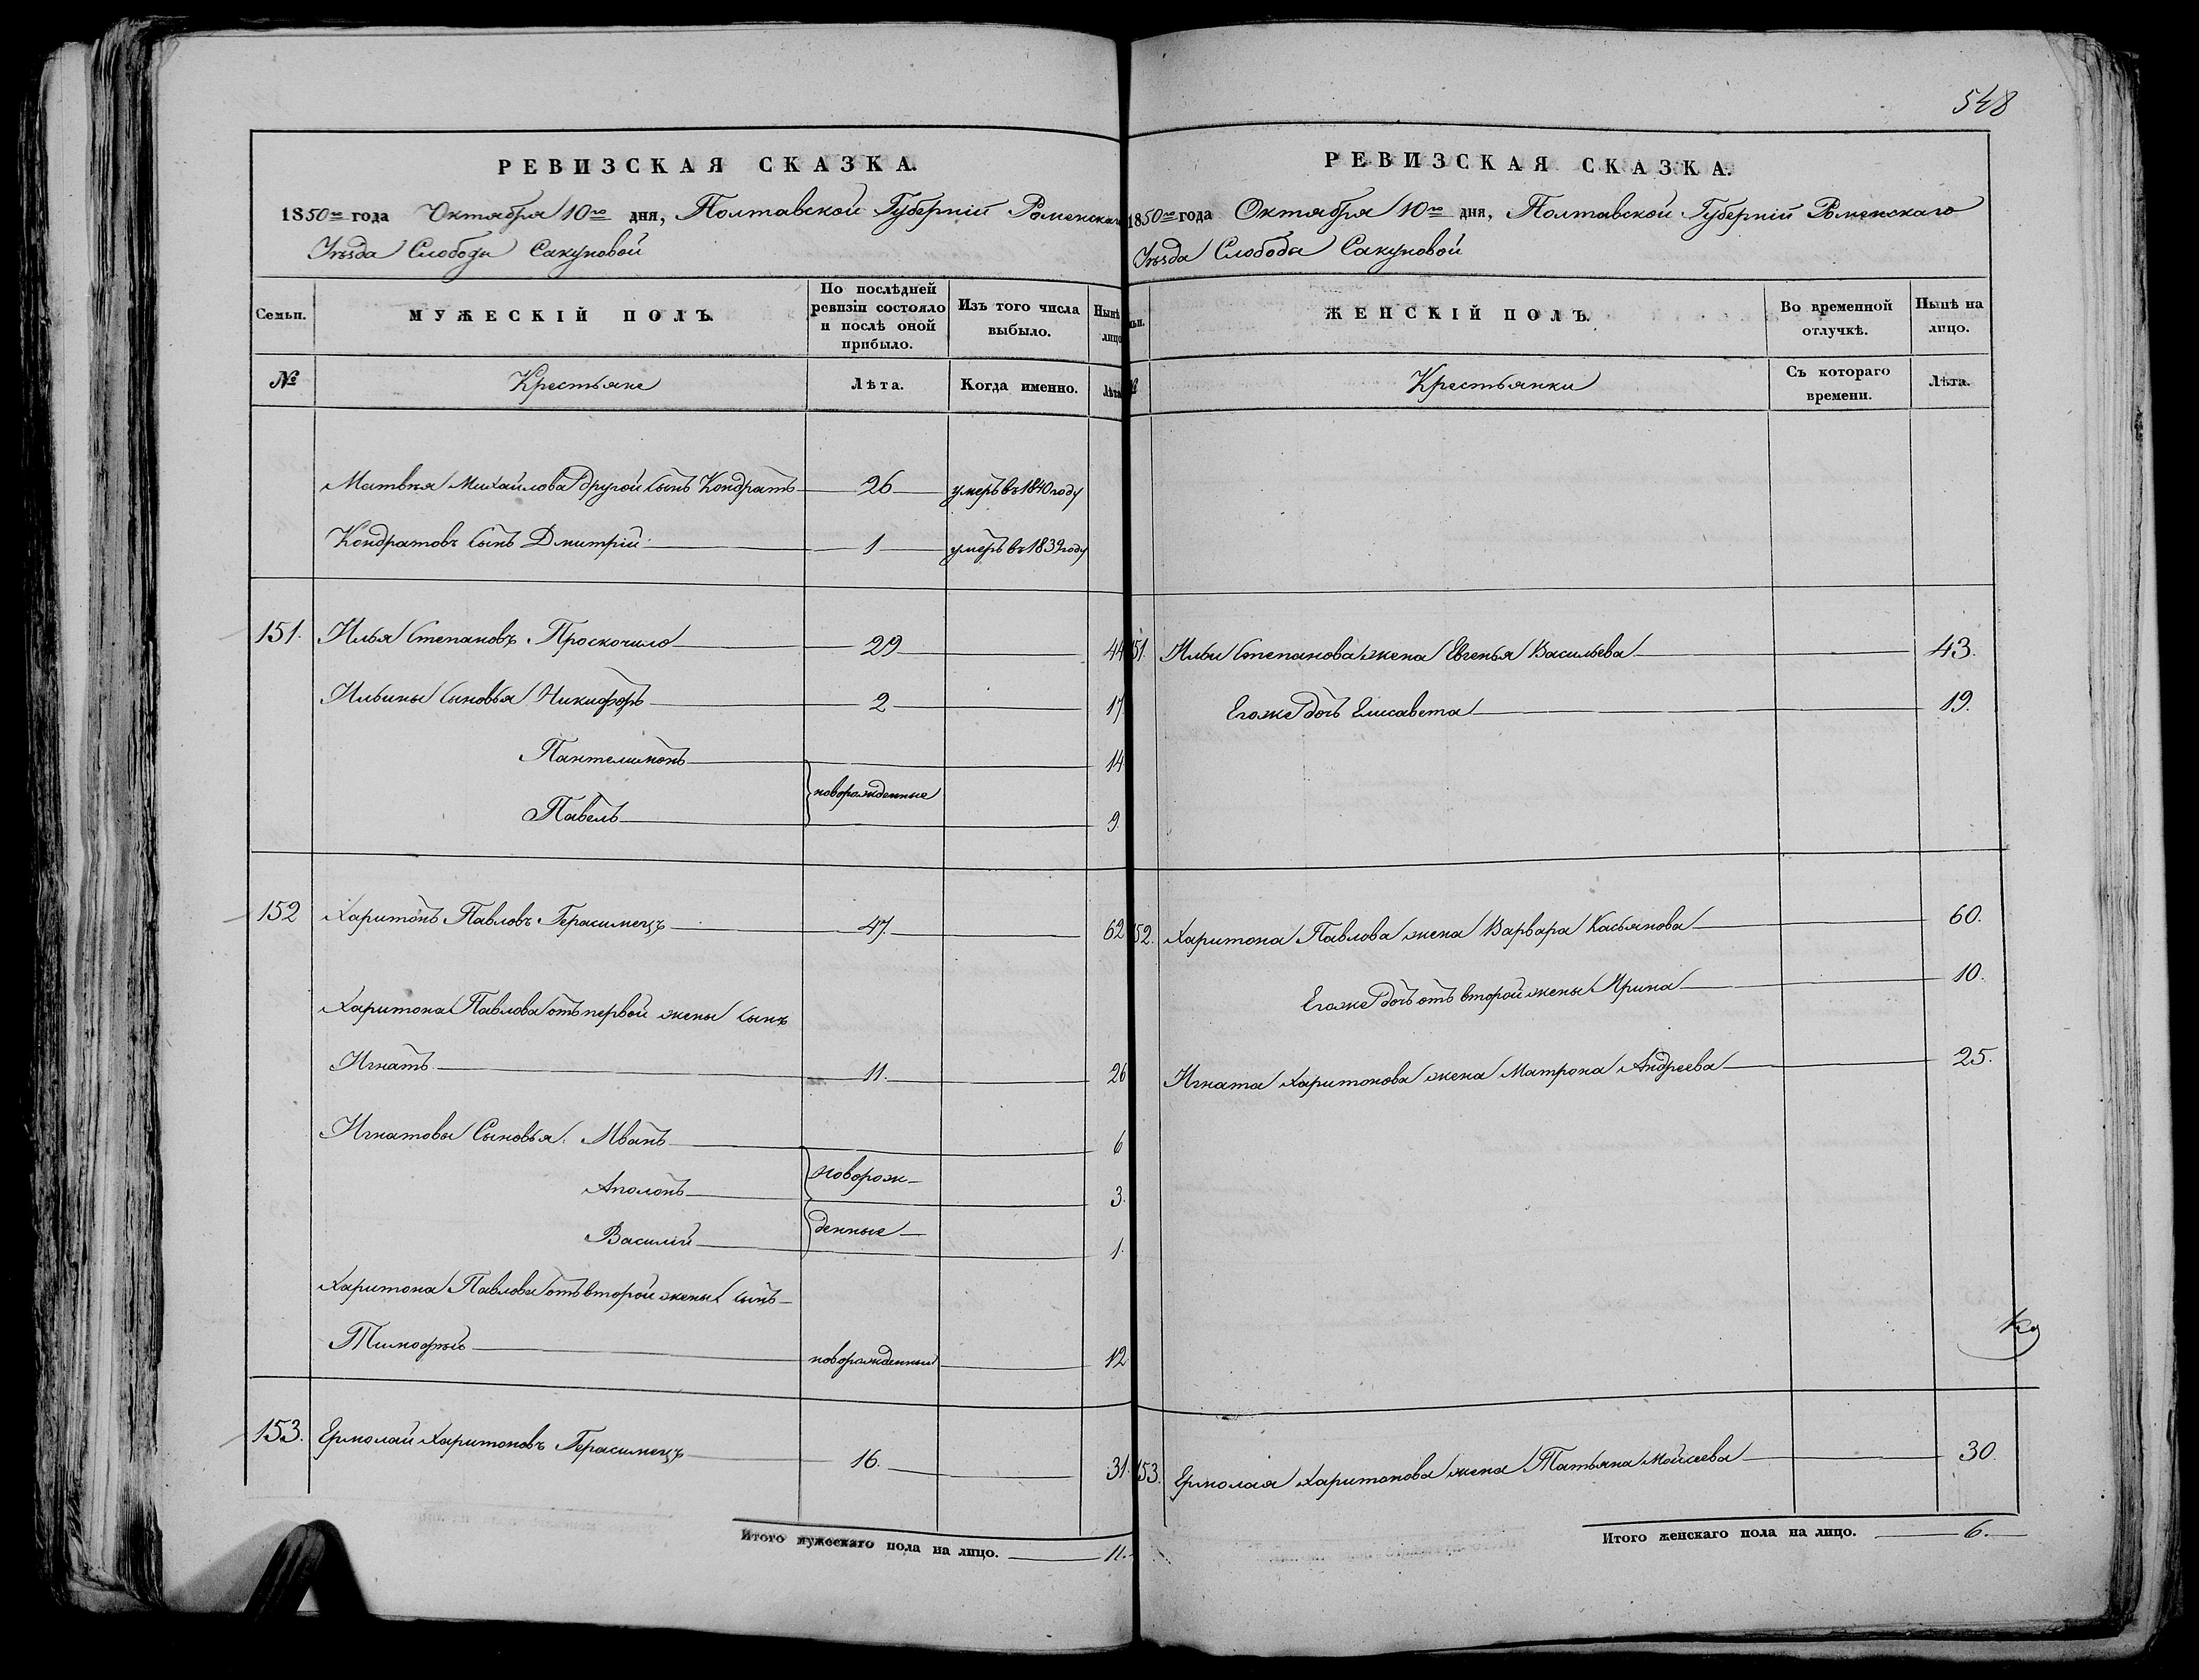 РЕВИЗСКАЯ СКАЗКА.
1850го года Октября 10го дня, Полтавской Губерніи Роменскаго
Уѣзда Слободы Сакуновой
Семьи.
МУЖЕСКІЙ ПОЛЪ.
По послѣдней
ревизіи состояло
и послѣ оной
прибыло.
Изъ того числа
выбыло.
Нынѣ
лицо
№
Крестьяне
Лѣта.
Когда именно.
Лѣта
Матвѣя Михайлова другой сынъ Кондратъ 26 умеръ въ 1840 году
Кондратовъ сынъ Дмитрій 1 умеръ въ 1839 году
151. Илья Степановъ Проскочило 29 44
Ильины сыновья Никифоръ 2 17
Пантелимонъ 14
новорожденные
Павелъ 9
152 Харитонъ Павловъ Герасимецъ 47 62
Харитона Павлова отъ первой жены сынъ
Игнатъ 11. 26
Игнатовы Сыновья Иванъ 6
новорож-
Аполонъ 3.
денные
Василій 1.
Харитона Павлова отъ второй жены сынъ
Тимофѣй новорожденный 12
153. Ермолай Харитоновъ Герасимецъ 16. 31.
Итого мужескаго пола на лицо. 11.
548
РЕВИЗСКАЯ СКАЗКА.
1850го года Октября 10го дня, Полтавской Губерніи Роменскаго
Уѣзда Слободы Сакуновой
ьи.
ЖЕНСКІЙ ПОЛЪ.
Во временной
отлучкѣ.
Нынѣ на
лицо.
№
Крестьянки
Съ котораго
времени.
Лѣта.
151. Ильи Степанова жена Евгенья Васильева 43.
Егоже дочь Елисавета 19.
52. Харитона Павлова жена Варвара Касьянова 60.
Егоже дочь отъ второй жены Ирина 10.
Игната Харитонова жена Матрона Андреева 25.
153. Ермолая Харитонова жена Татьяна Мойсеева 30.
Итого женскаго пола на лицо. 6.